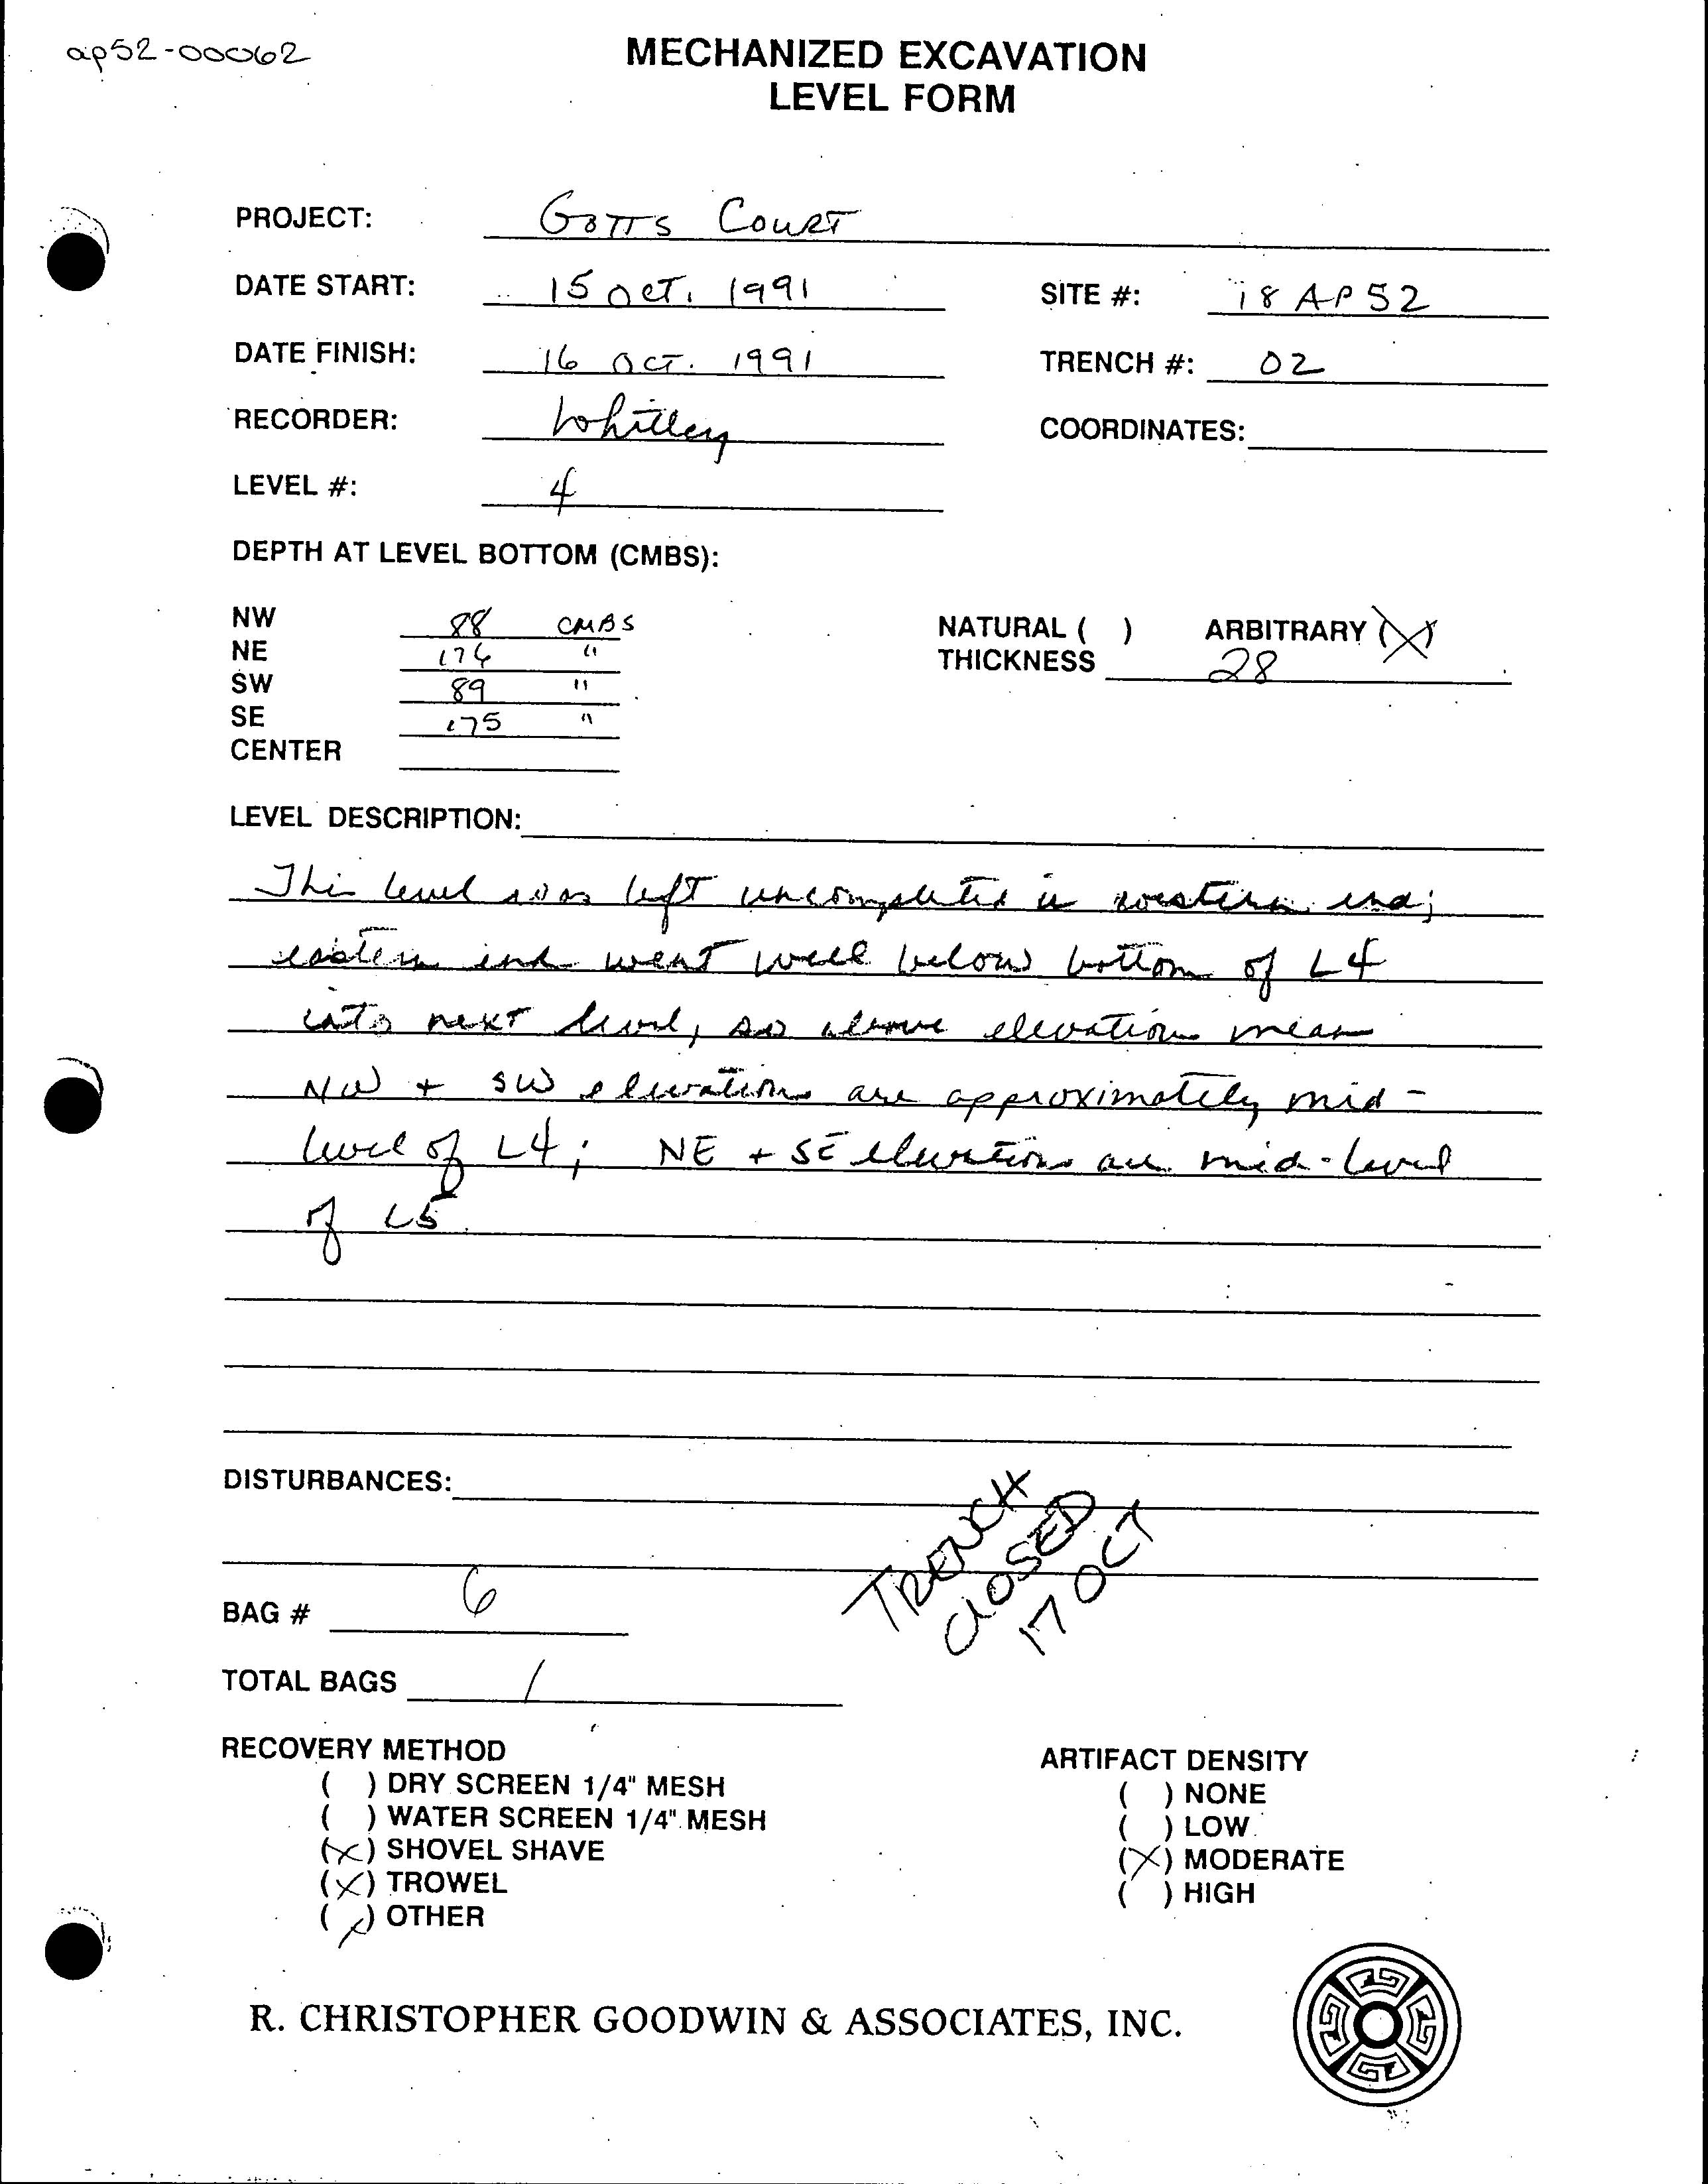 ap52-00062
MECHANIZED EXCAVATION
LEVEL FORM
PROJECT: Gotts Court
DATE START: 15 Oct. 1991 SITE #: 18 AP 52
DATE FINISH: 16 Oct. 1991 TRENCH #: 02
RECORDER: Whitley COORDINATES:
LEVEL #: 4
DEPTH AT LEVEL BOTTOM (CMBS):
NW 88 CMBS NATURAL ( ) ARBITRARY (X)
NE 176 " THICKNESS 28
SW 89 "
SE 175 "
CENTER
LEVEL DESCRIPTION:
This level was left uncompleted in western end;
eastern end went well below bottom of L4
into next level, so above elevations mean
NW + SW elevations are approximately mid-
level of L4; NE + SE elevations are mid-level
of L5.
DISTURBANCES:
TRENCH
CLOSED
17 OCT
BAG # 6
TOTAL BAGS 1
RECOVERY METHOD ARTIFACT DENSITY
( ) DRY SCREEN 1/4" MESH ( ) NONE
( ) WATER SCREEN 1/4" MESH ( ) LOW
(X) SHOVEL SHAVE (X) MODERATE
(X) TROWEL ( ) HIGH
(X) OTHER
R. CHRISTOPHER GOODWIN & ASSOCIATES, INC.